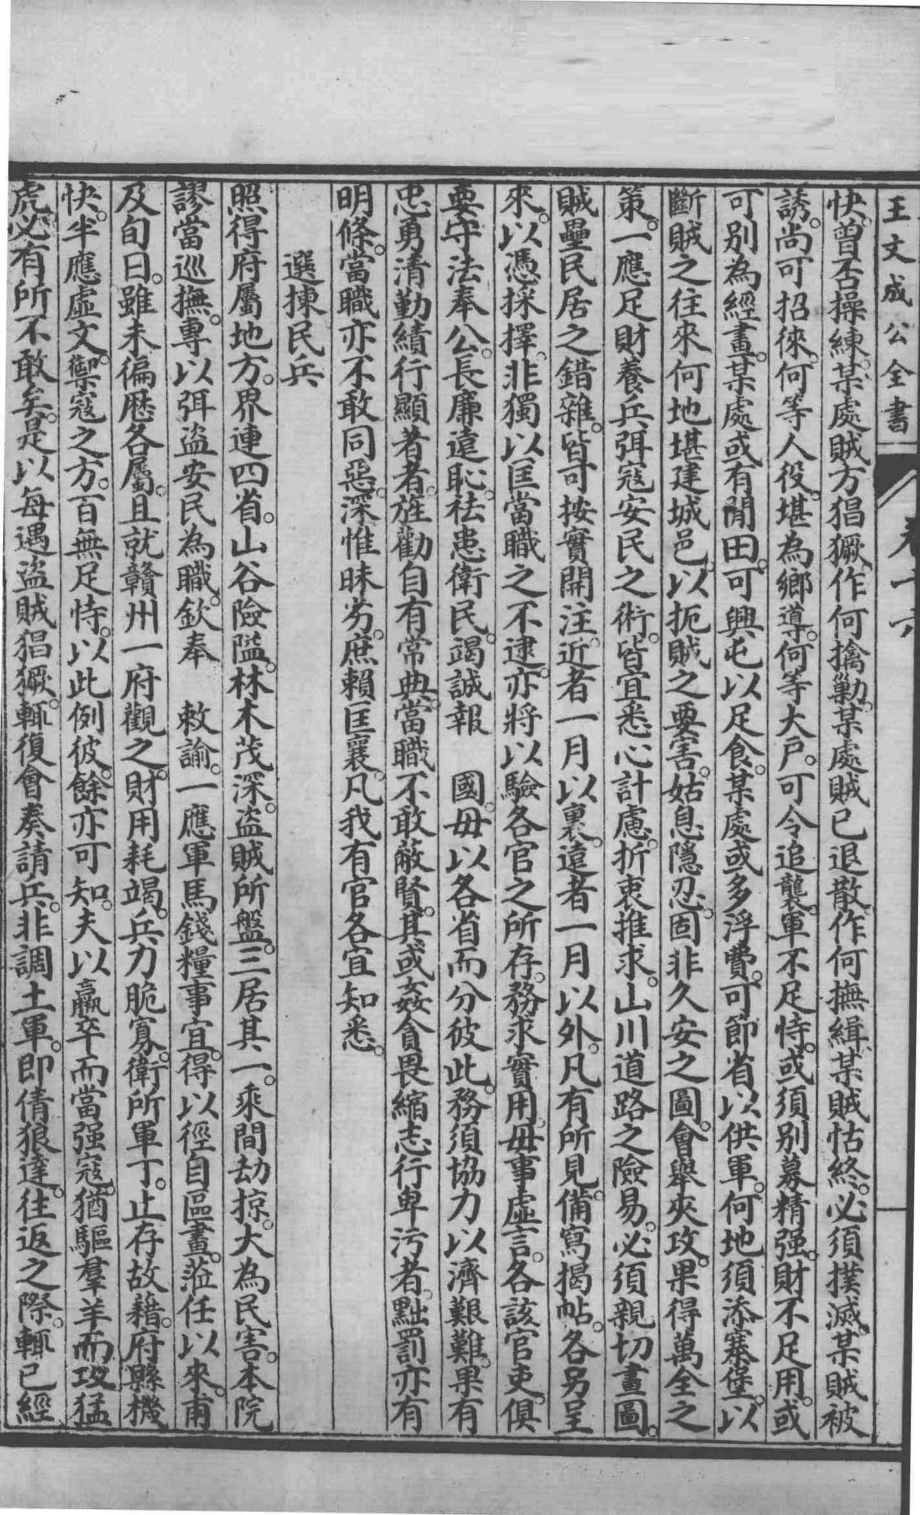 王文成公全書 卷十六
快。曾否操練。某處賊方猖獗。作何擒勦。某處賊已退散。作何撫緝。某賊怙終。必須撲滅。某賊被
誘。尚可招徠。何等人役。堪為鄉導。何等大戶。可令追襲。軍不足恃。或須別募精强。財不足用。或
可別為經畫。某處或有閒田。可興屯以足食。某處或多浮費。可節省以供軍。何地須添寨堡。以
斷賊之往來。何地堪建城邑。以扼賊之要害。姑息隱忍。固非久安之圖。會舉夾攻。果得萬全之
策。一應足財養兵弭寇安民之術。皆宜悉心計慮。折衷推求。山川道路之險易。必須親切畫圖。
賊壘民居之錯雜。皆可按實開注。近者一月以裏。遠者一月以外。凡有所見。備寫揭帖。各另呈
來。以憑採擇。非獨以匡當職之不逮。亦將以驗各官之所存。務求實用。毋事虛言。各該官吏。俱
要守法奉公。長廉遠恥。祛患衛民。竭誠報 國。毋以各省而分彼此。務須協力以濟艱難。果有
忠勇清勤績行顯著者。旌勸自有常典。當職不敢蔽賢。其或姦貪畏縮志行卑污者。黜罰亦有
明條。當職亦不敢同惡。深惟昧劣。庶賴匡襄。凡我有官。各宜知悉。
選揀民兵
照得府屬地方。界連四省。山谷險隘。林木茂深。盜賊所盤。三居其一。乘間劫掠。大為民害。本院
謬當巡撫。專以弭盜安民為職。欽奉 敕諭。一應軍馬錢糧事宜。得以徑自區畫。蒞任以來。甫
及旬日。雖未徧歷各屬。且就贛州一府觀之。財用耗竭。兵力脆寡。衛所軍丁。止存故籍。府縣機
快。半應虛文。禦寇之方。百無足恃。以此例彼。餘亦可知。夫以羸卒而當强寇。猶驅羣羊而攻猛
虎。必有所不敢矣。是以每遇盜賊猖獗。輒復會奏請兵。非調土軍。即倩狼達。往返之際。輒已經